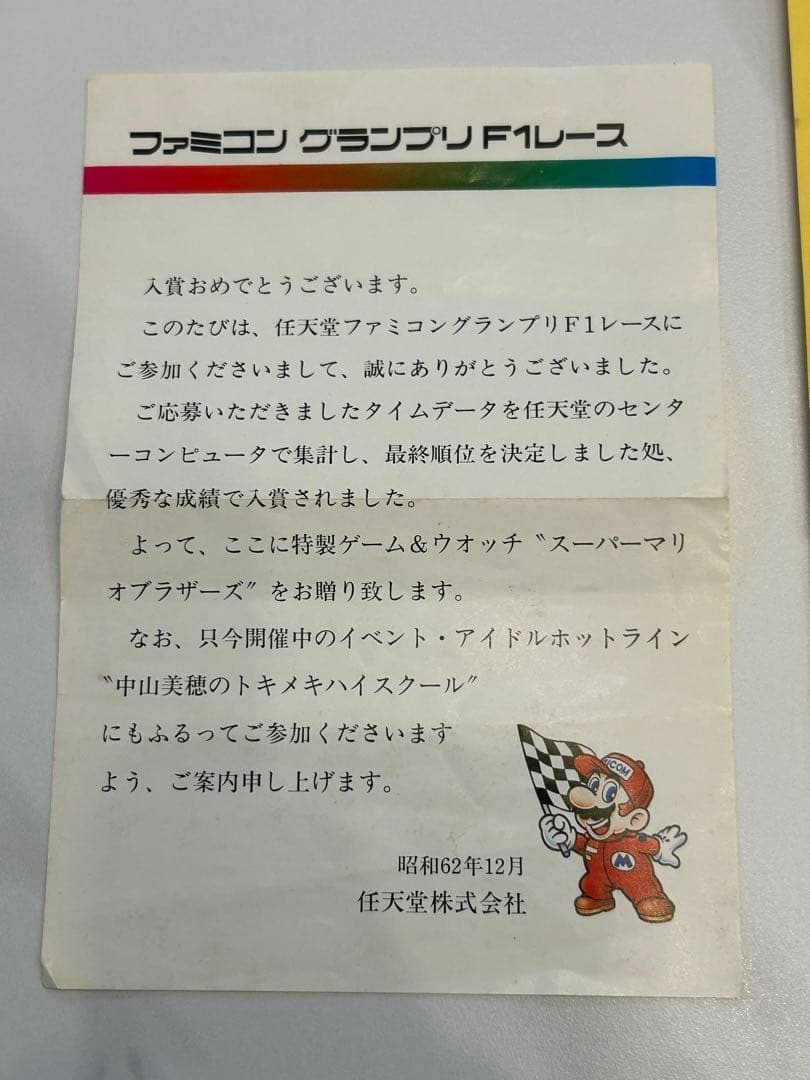 ファミコン グランプリ F1レース
入賞おめでとうございます。
このたびは、任天堂ファミコングランプリF1レースに
ご参加くださいまして、誠にありがとうございました。
ご応募いただきましたタイムデータを任天堂のセンタ
ーコンピュータで集計し、最終順位を決定しました処、
優秀な成績で入賞されました。
よって、ここに特製ゲーム&ウオッチ〝スーパーマリ
オブラザーズ〞をお贈り致します。
なお、只今開催中のイベント・アイドルホットライン
〝中山美穂のトキメキハイスクール〞
にもふるってご参加くださいます
よう、ご案内申し上げます。
ICOM
M
昭和62年12月
任天堂株式会社